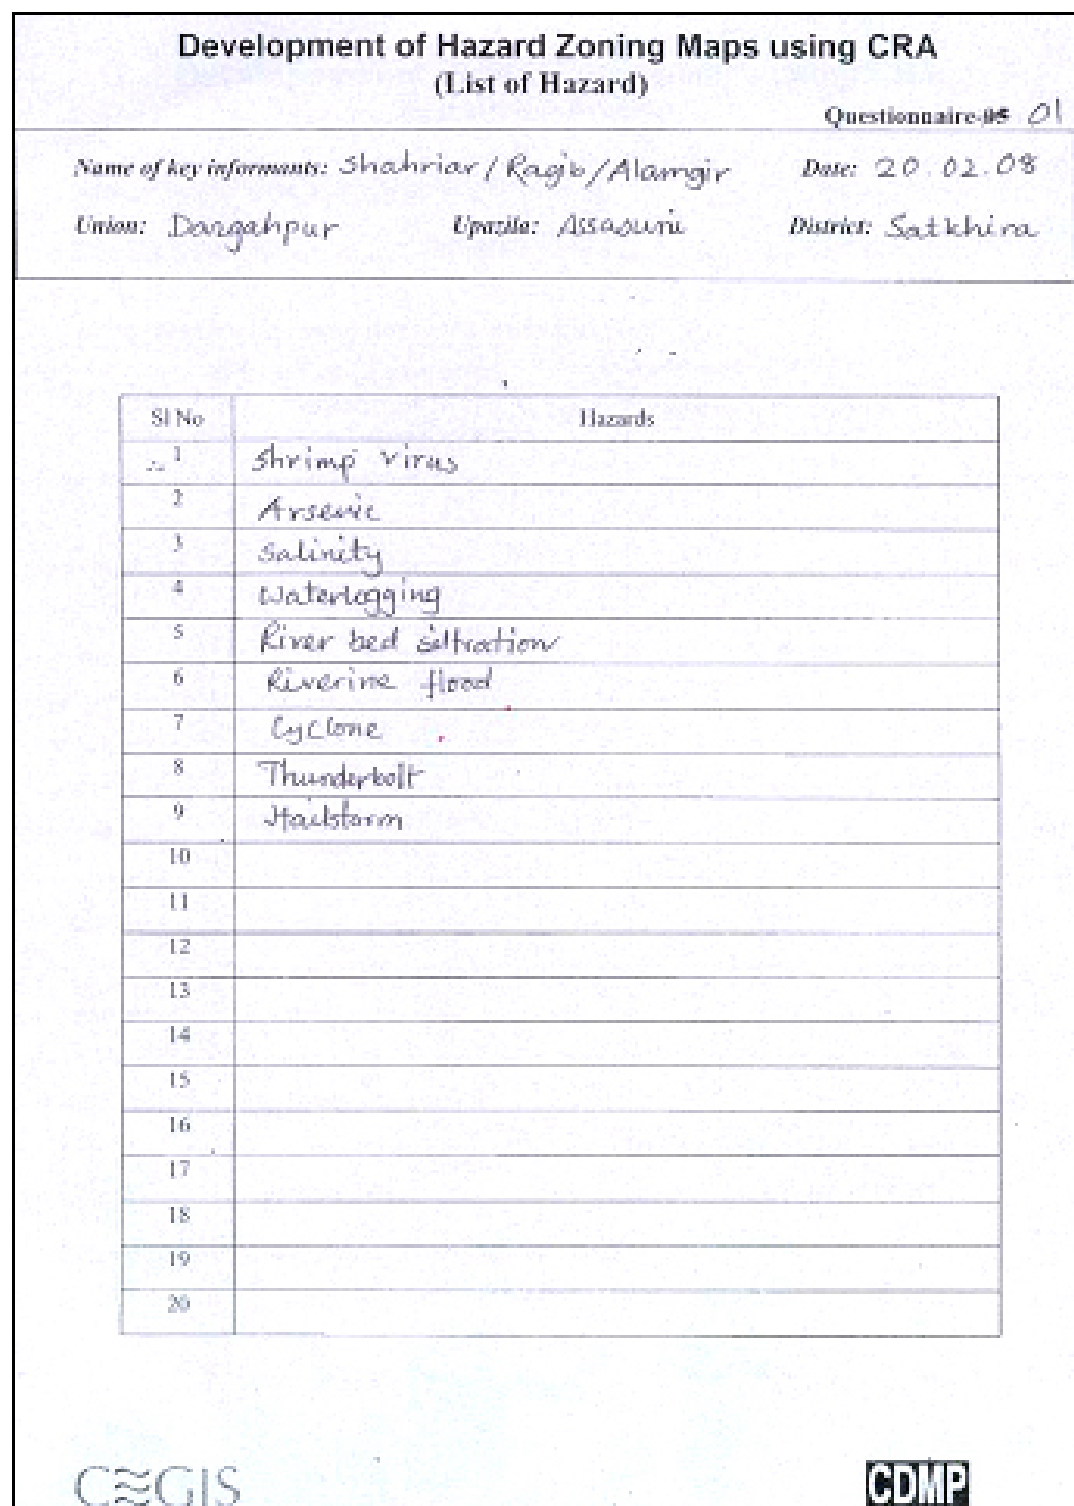 Development of Hazard Zoning Maps using CRA
(List of Hazard)
Questionnaire-#5 01
Name of key informants: Shahriar / Ragib / Alamgir Date: 20.02.08
Union: Dargahpur Upazila: Assasuni District: Satkhira
Sl No Hazards
1 Shrimp virus
2 Arsenic
3 Salinity
4 Waterlogging
5 River bed siltration
6 Riverine flood
7 Cyclone
8 Thunderbolt
9 Hailstorm
10
11
12
13
14
15
16
17
18
19
20
CEGIS CDMP